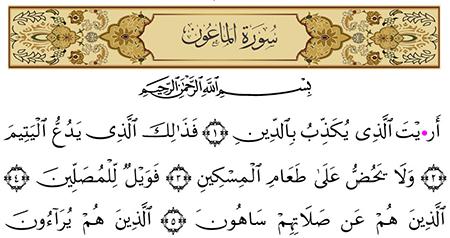 سُورَةُ الْمَاعُونَ
بِسْمِ اللَّهِ الرَّحْمَٰنِ الرَّحِيمِ
أَرَ•يْتَ الَّذِى يُكَذِّبُ بِالدِّينِ ﴿١﴾ فَذَٰلِكَ الَّذِى يَدُعُّ الْيَتِيمَ
﴿٢﴾ وَلَا يَحُضُّ عَلَىٰ طَعَامِ الْمِسْكِينِ ﴿٣﴾ فَوَيْلٌ لِّلْمُصَلِّينَ ﴿٤﴾
الَّذِينَ هُمْ عَن صَلَاتِهِمْ سَاهُونَ ﴿٥﴾ الَّذِينَ هُمْ يُرَآءُونَ